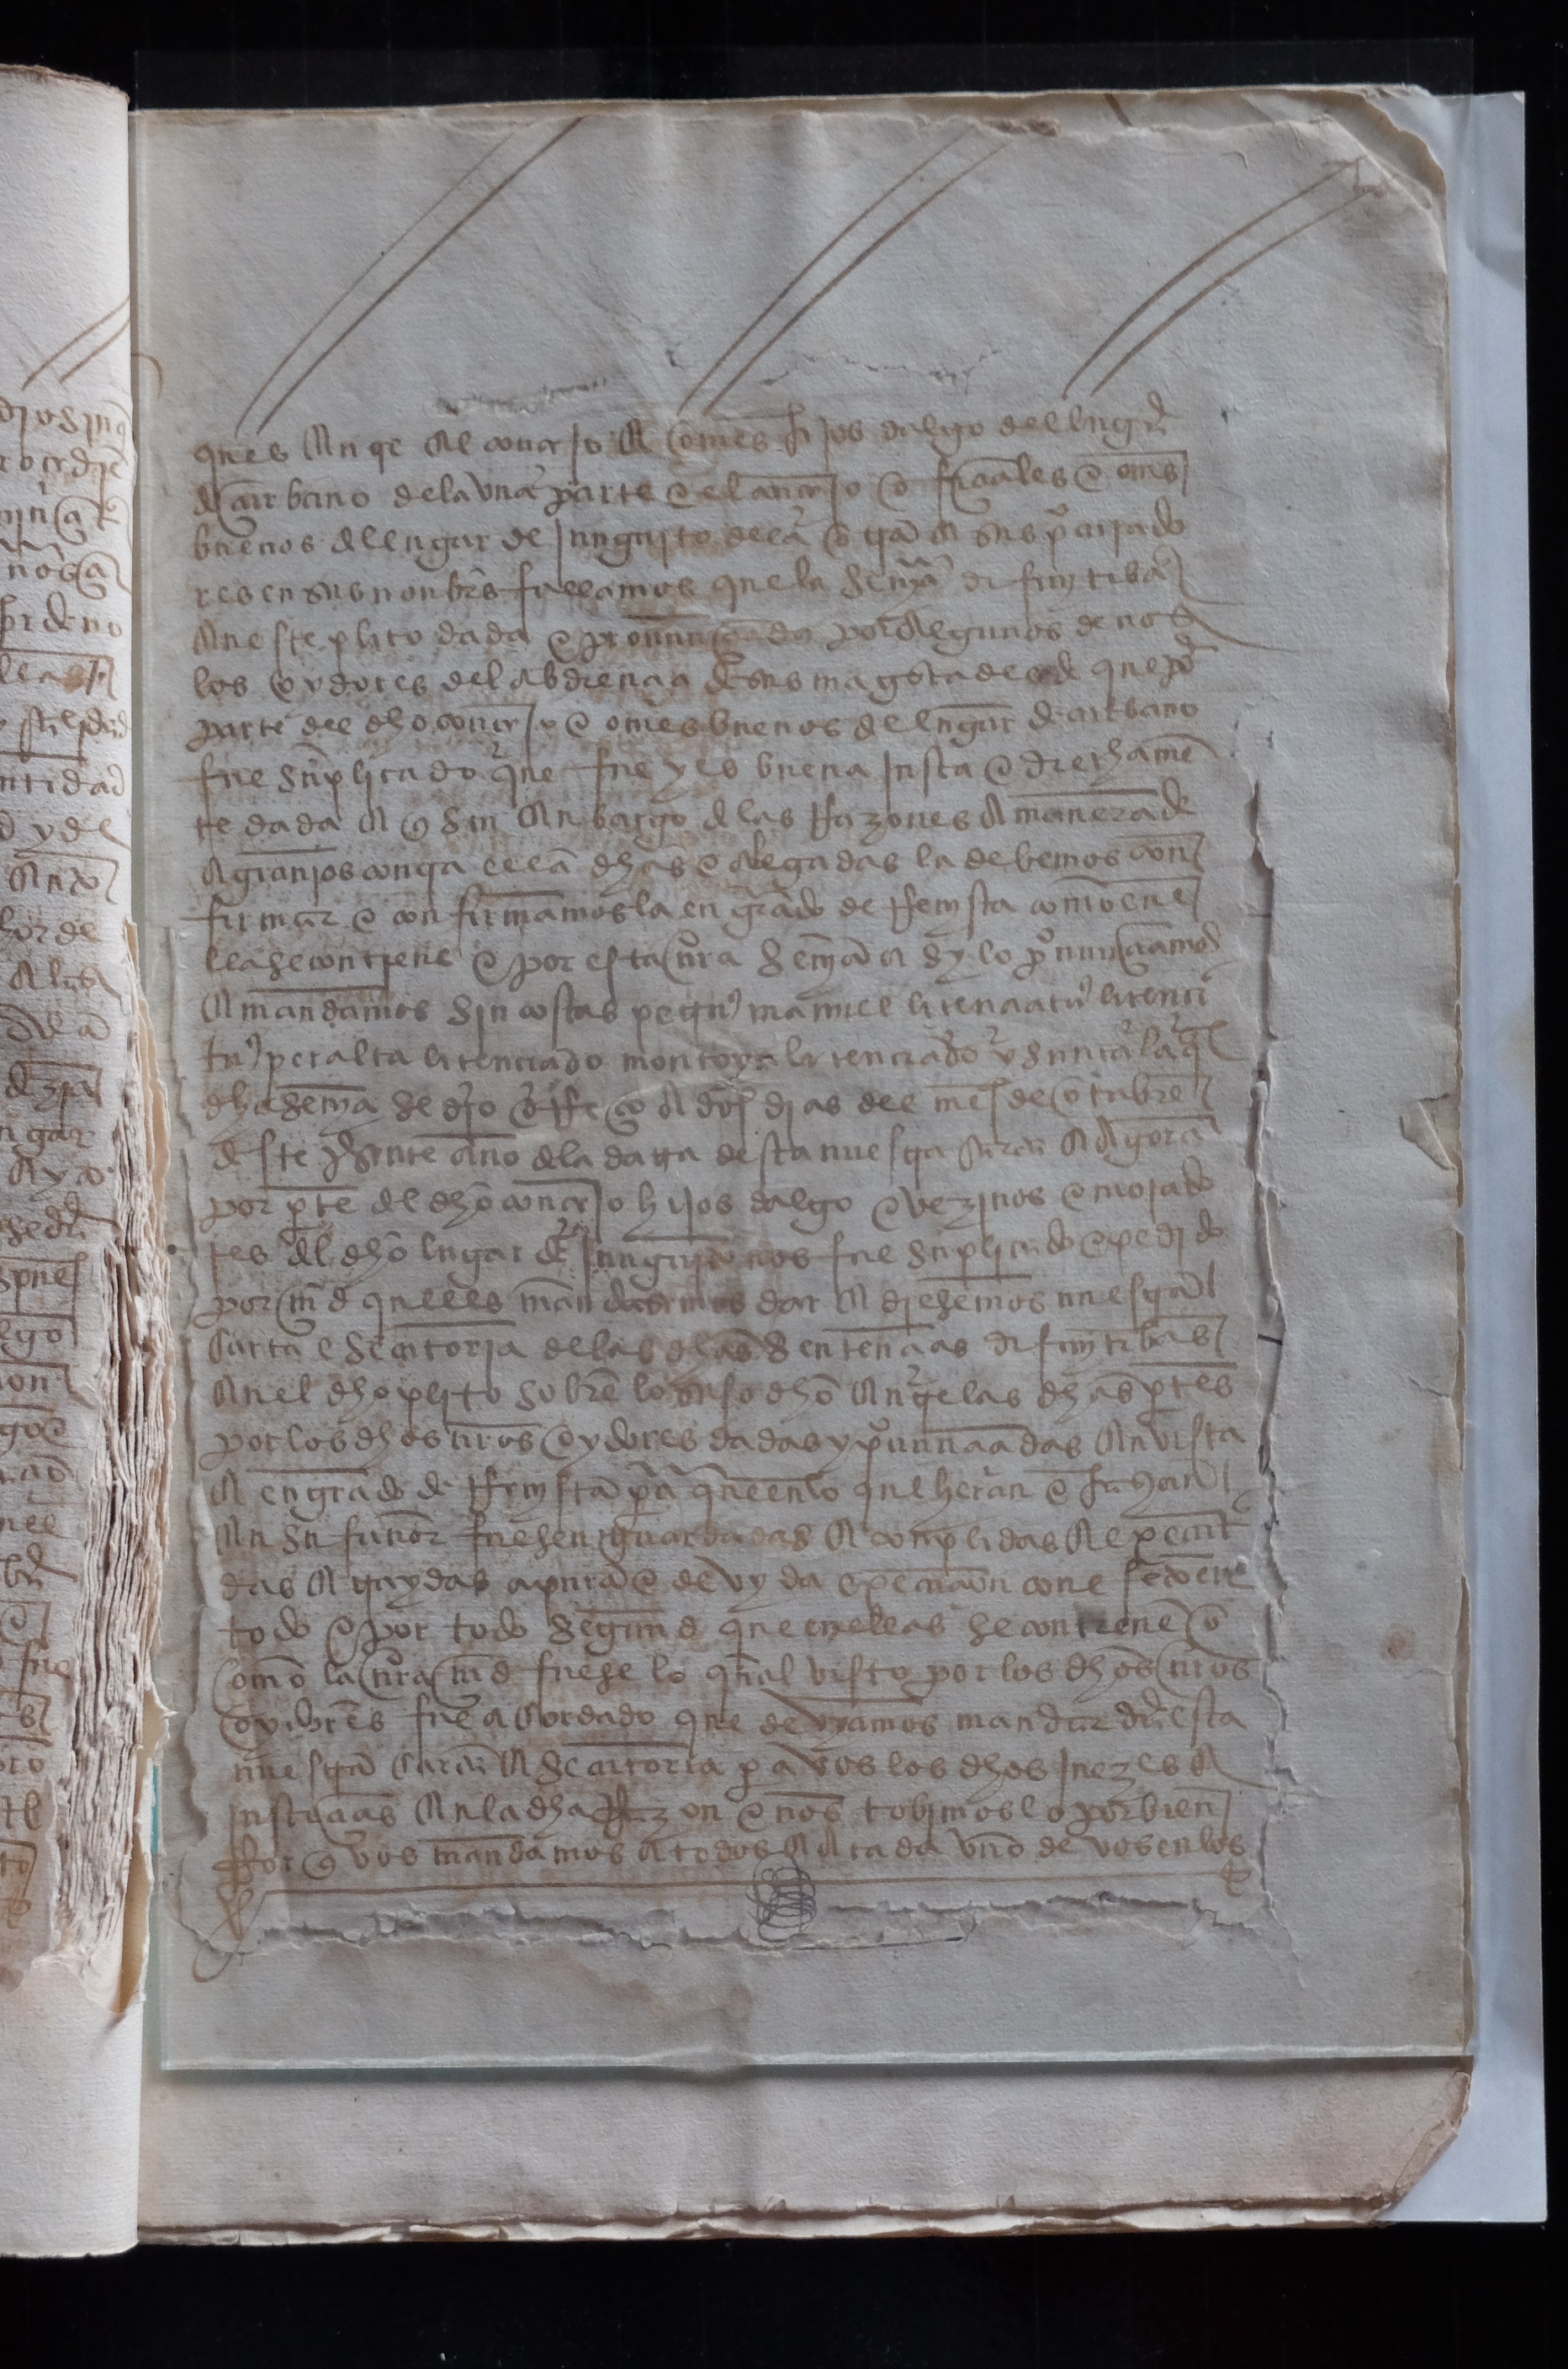 ques en qe el concejo e omes fijos dalgo del lugr
de arbano dela una parte e el concejo e fieles e omes
buenos del lugar de junguito dela otra e sus procurado
res en sus nonbres fallamos que la senya difinitiba
en este plito dada e pronunciada por algunos de nos
los oydores del abdiencia de sus magestades de que por
parte del dho concejo e omes buenos del lugar de arbano
fue suplicado que fue y es buena justa e derechamen
te dada e q sin enbargo de las rrazones a manera de
agravios contra ella dhas e alegadas la debemos con
firmar e confirmamosla en grado de rrevista como en e
lla se contiene e por esta nra senya asy lo pronunciamos
e mandamos sin costas petrus manuel licenciatus licenci
tus peralta licenciado montoya licenciado la ql
dha senya se dio e rrezo a dos dias del mes de otubre
deste presente año dela data desta nuestra carta e agora
por pte del dho concejo hijos dalgo e vezinos e morado
res del dho lugar de junguito nos fue suplicado e pedido
por md que les mandasemos dar e diesemos nuestra
carta esecutoria delas dhas sentencias difinitibas
en el dho plito sobre lo suso dho entre las dhas ptes
por los dhos nros oydores dadas y pronunciadas en vista
e en grado de rrevista para que en lo que heran e fazian
en su fauor fuesen guardadas e conplidas e executa
das e traydas a pura e devyda execucion con efecto en
todo e por todo segund que en ellas se contiene o
como la nra md fuese lo qual visto por los dhos nros
oydores fue acordado que devyamos mandar dar esta
nuestra carta esecutoria pa vos los dhos juezes e
justicias en la dha rrazon e nos tobimoslo por bien
por q vos mandamos a todos e a cada uno de vos en los